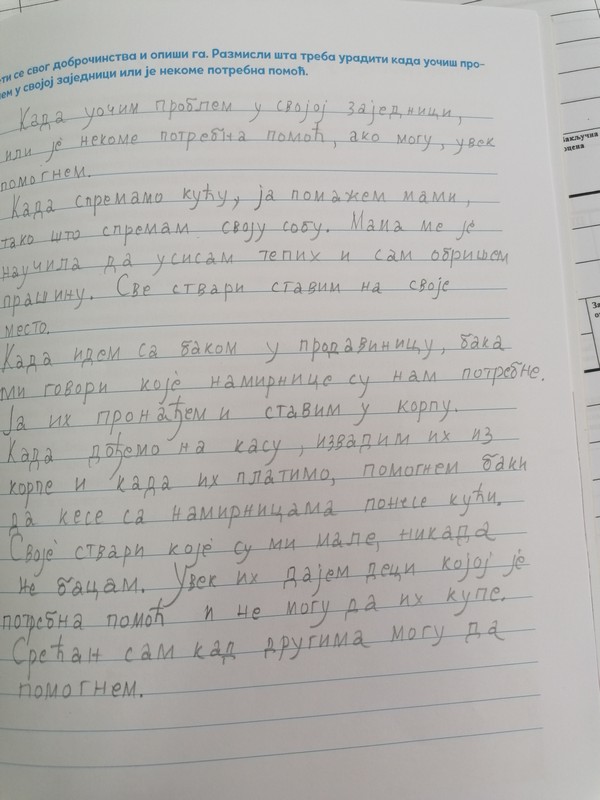 ти се свог доброчинства и опиши га. Размисли шта треба урадити када уочиш про-
лем у својој заједници или је некоме потребна помоћ.
Када уочим проблем у својој заједници,
или је некоме потребна помоћ, ако могу, увек
помогнем.
Када спремамо кућу, ја помажем мами,
тако што спремам своју собу. Мама ме је
научила да усисам тепих и сам обришем
прашину. Све ствари ставим на своје
место.
Када идем са баком у продавиницу, бака
ми говори које намирнице су нам потребне.
Ја их пронађем и ставим у корпу.
Када дођемо на касу, извадим их из
корпе и када их платимо, помогнем баки
да кесе са намирницама понесе кући.
Своје ствари које су ми мале, никада
не бацам. Увек их дајем деци којој је
потребна помоћ и не могу да их купе.
Срећан сам кад другима могу да
помогнем.
закључна
оцена